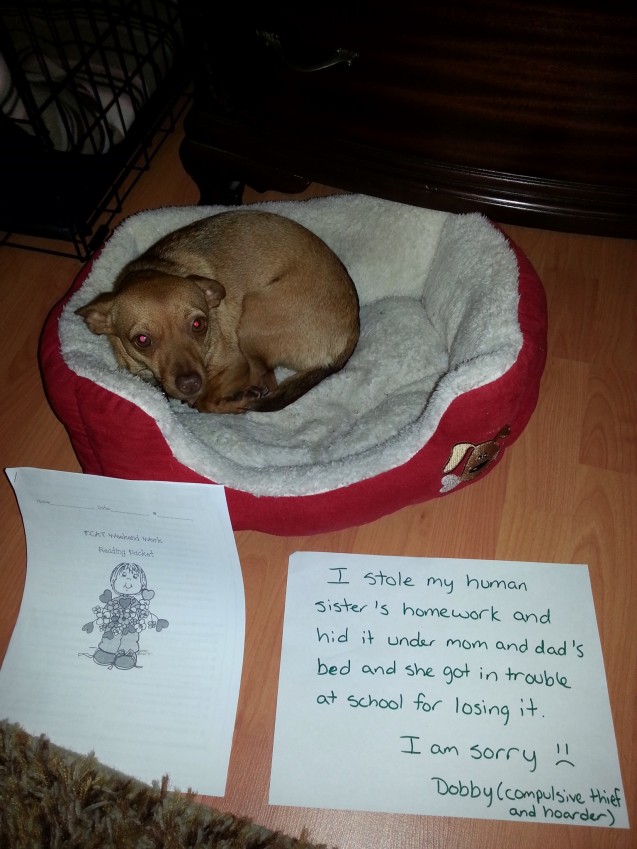 Name Date #
FCAT Weekend Work
Reading Packet
I stole my human
sister's homework and
hid it under mom and dad's
bed and she got in trouble
at school for losing it.
I am sorry !! ⌢
Dobby (compulsive thief
and hoarder)